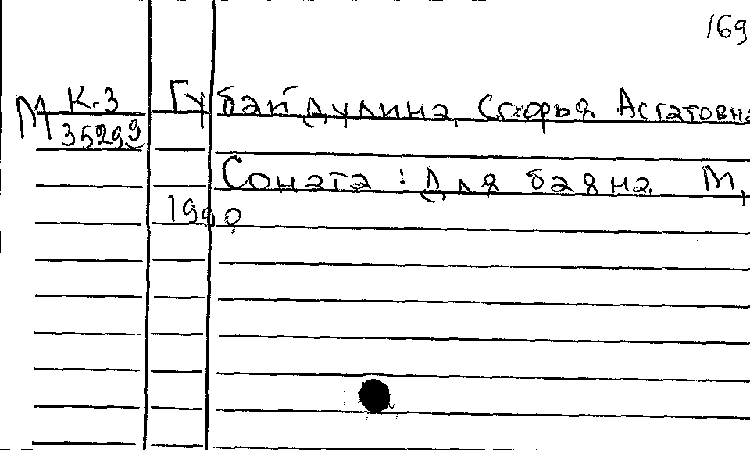 169
М К-3 Губайдулина, Софья Асгатовна
35299
Соната : Для баяна. М,
1990